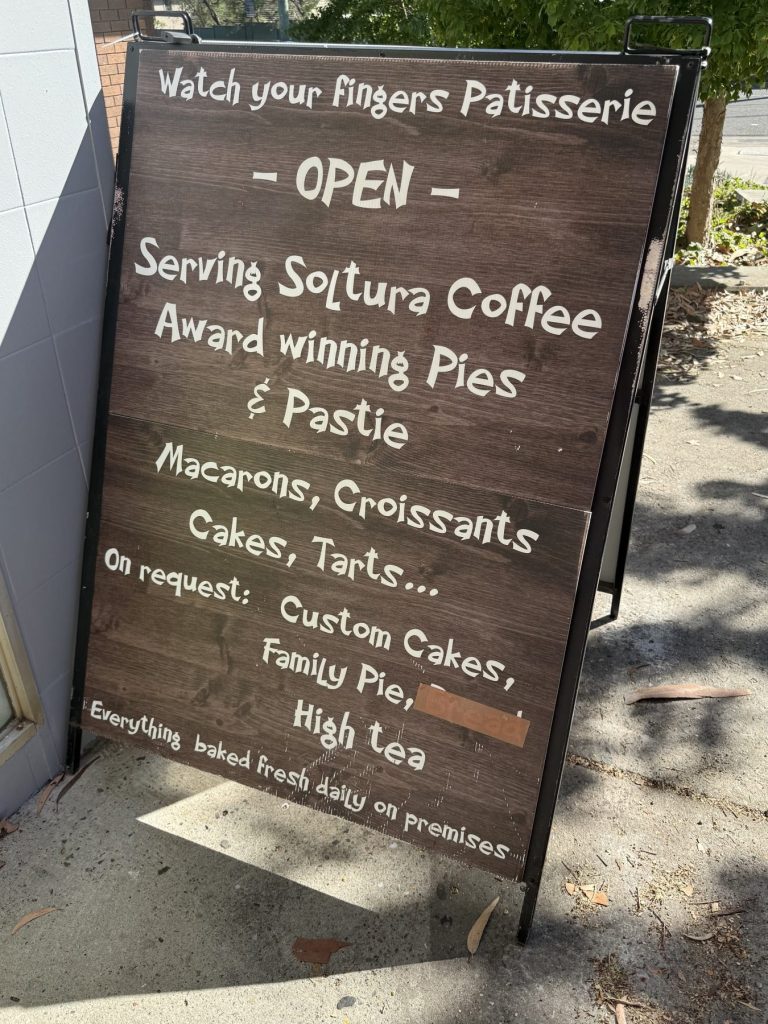 Watch your fingers Patisserie
- OPEN -
Serving Soltura Coffee
Award winning Pies
& Pastie
Macarons, Croissants
Cakes, Tarts...
On request: Custom Cakes,
Family Pie,
High tea
Everything baked fresh daily on premises